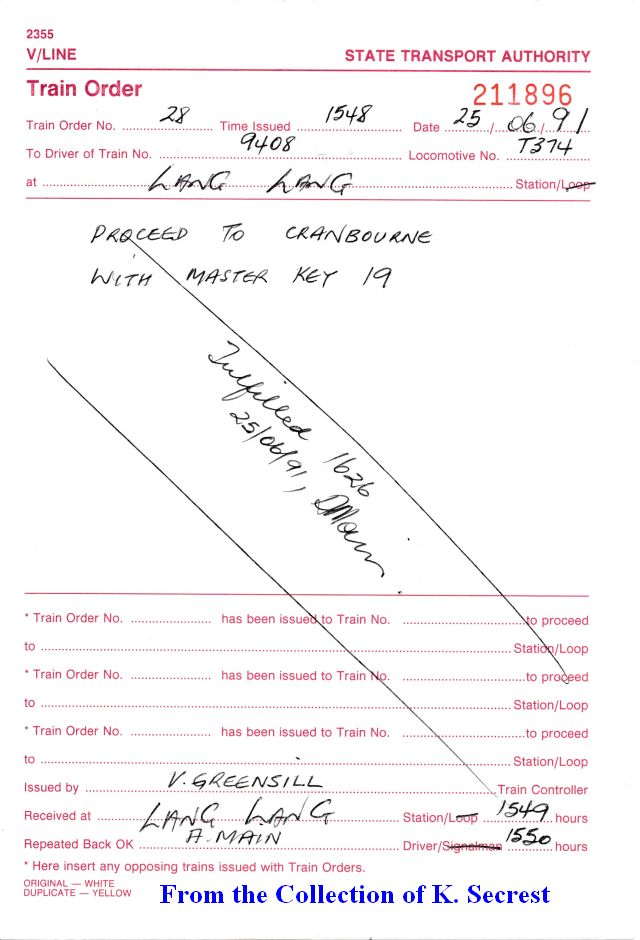 2355
V/LINE STATE TRANSPORT AUTHORITY
Train Order 211896
Train Order No. 28 Time Issued 1548 Date 25/06/91
To Driver of Train No. 9408 Locomotive No. T374
at LANG LANG Station/Loop
PROCEED TO CRANBOURNE
WITH MASTER KEY 19
Fulfilled 1626
25/06/91, AMain
* Train Order No. has been issued to Train No. to proceed
to Station/Loop
* Train Order No. has been issued to Train No. to proceed
to Station/Loop
* Train Order No. has been issued to Train No. to proceed
to Station/Loop
Issued by V. GREENSILL Train Controller
Received at LANG LANG Station/Loop 1549 hours
Repeated Back OK A. MAIN Driver/Signalman 1550 hours
* Here insert any opposing trains issued with Train Orders.
ORIGINAL — WHITE
DUPLICATE — YELLOW
From the Collection of K. Secrest